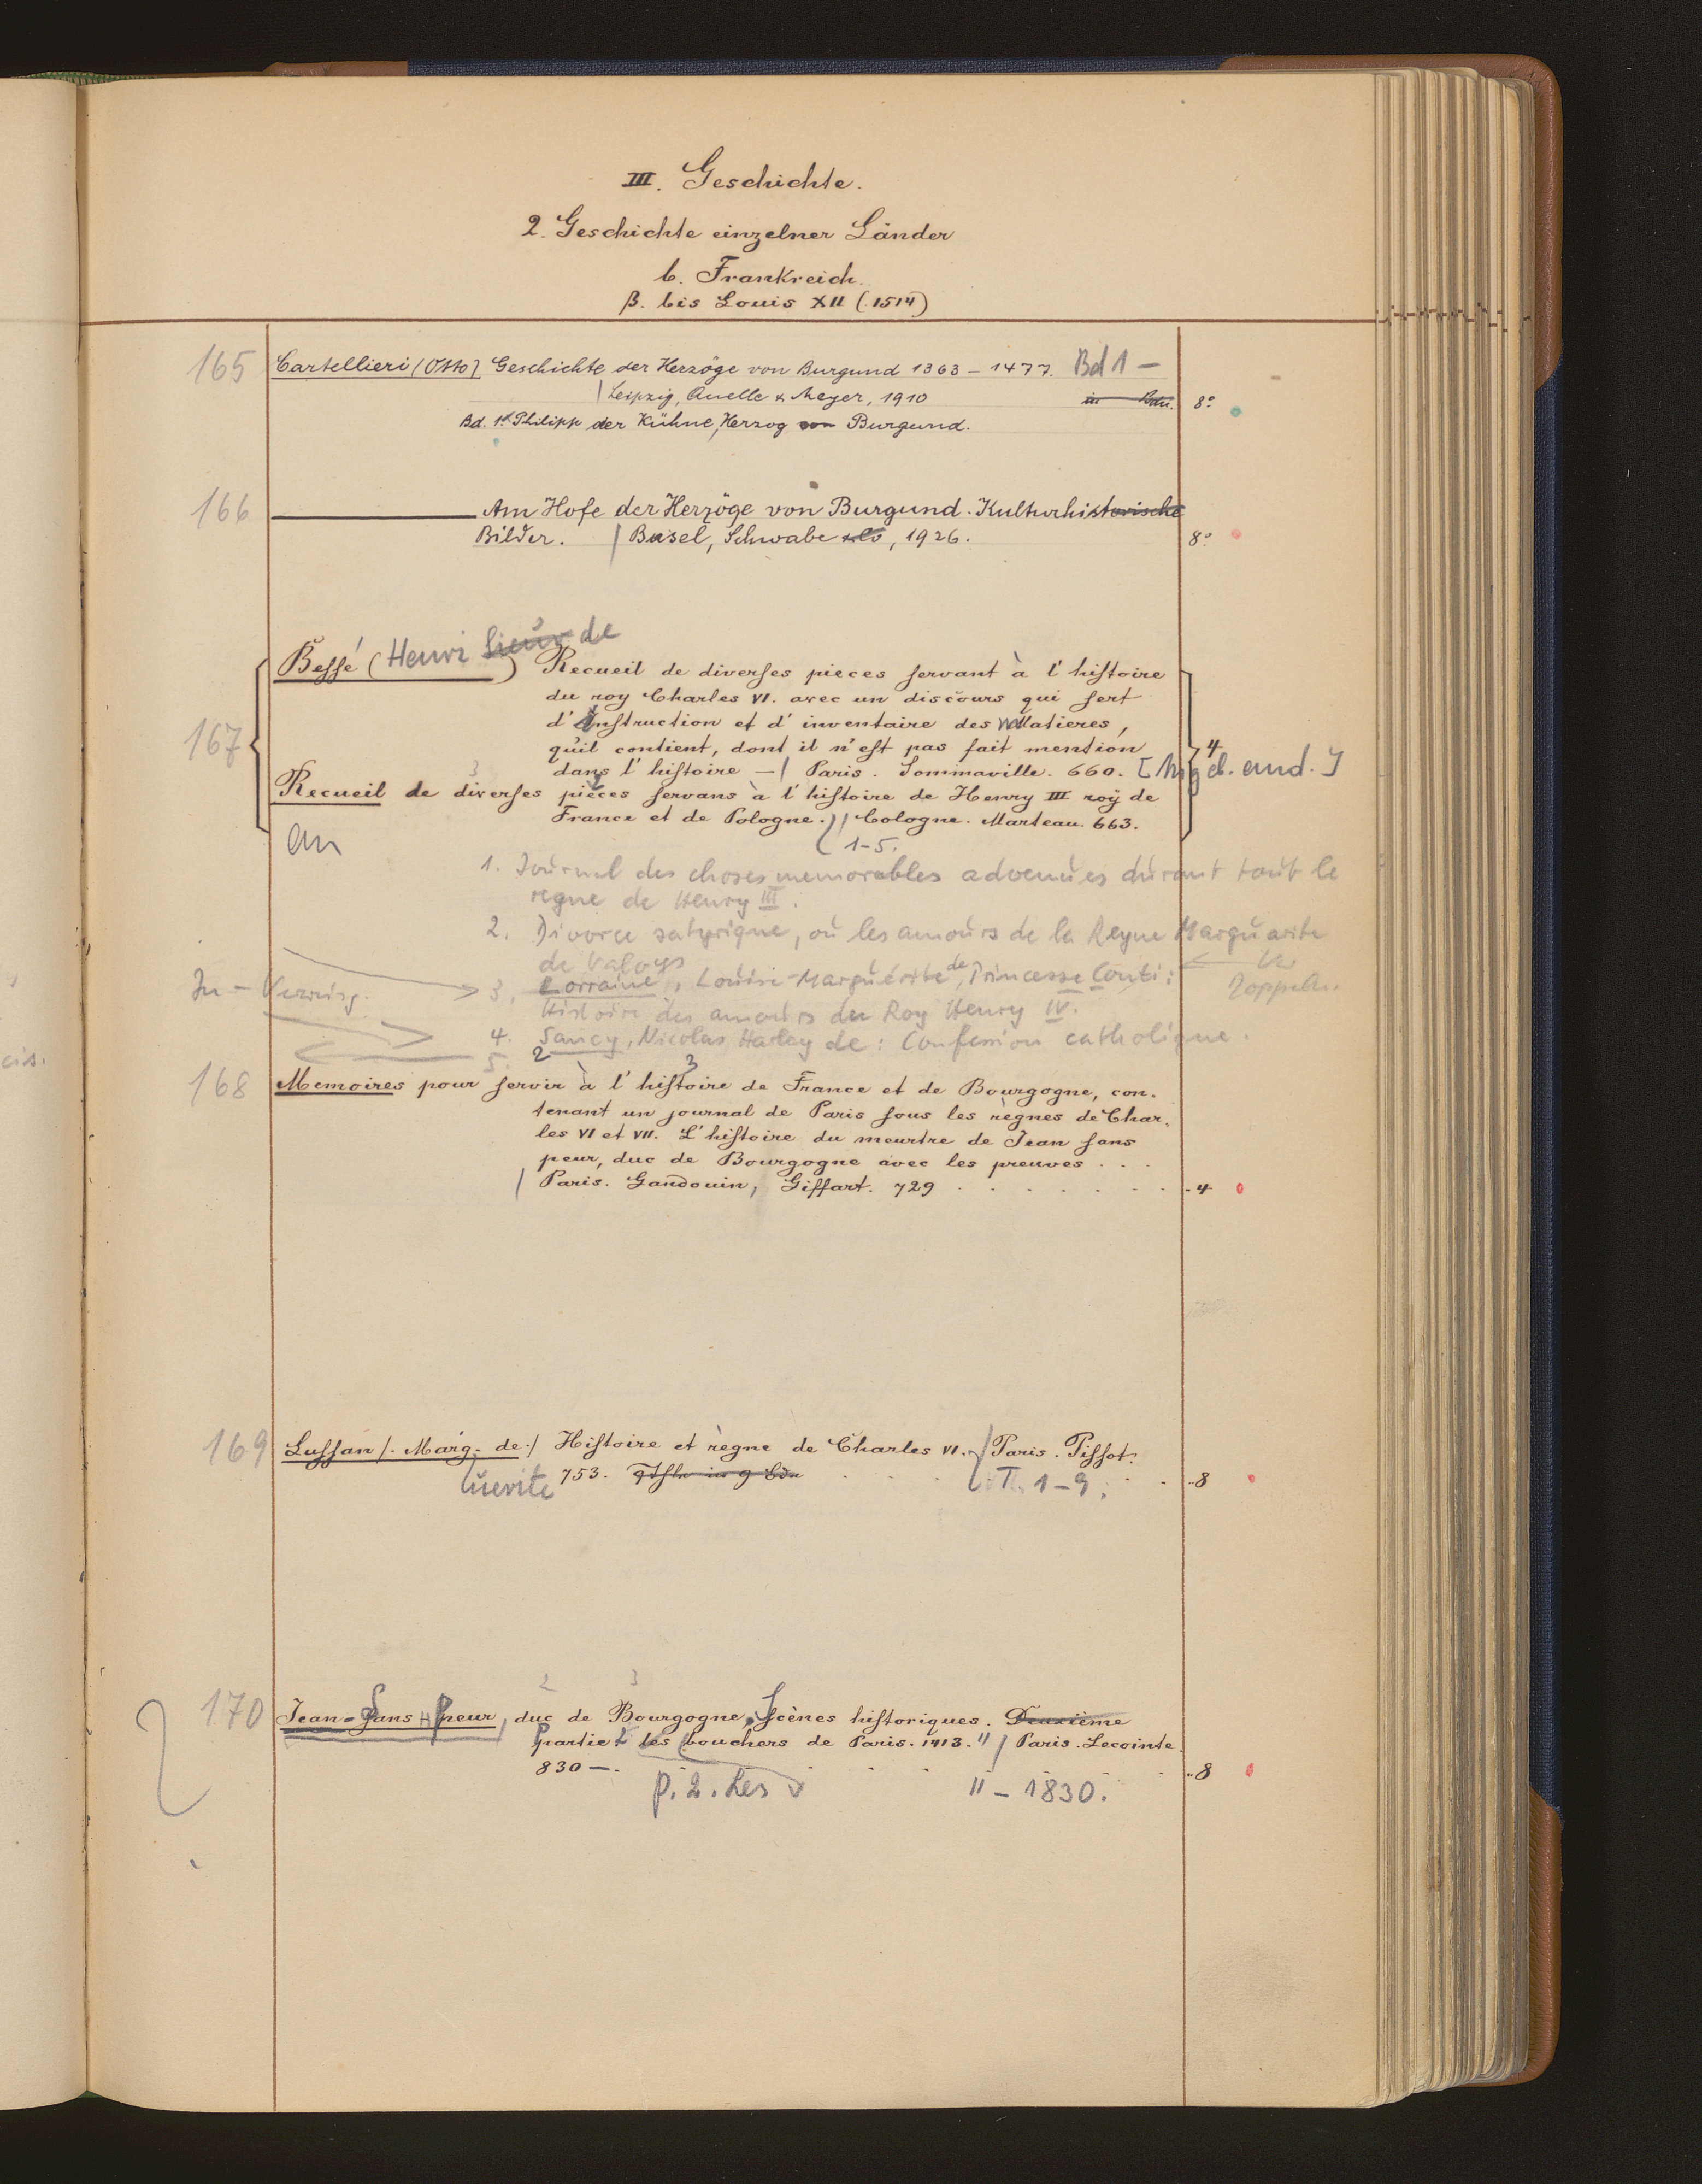 III. Geschichte.
2. Geschichte einzelner Länder
b. Frankreich.
β. bis Louis XII (1514)
165 Cartellieri (Otto) Geschichte der Herzöge von Burgund 1363 – 1477. Bd 1 –
Leipzig, Quelle & Meyer, 1910 in Bdn. 8°
Bd. 1. Philipp der Kühne, Herzog von Burgund.
166 ——— Am Hofe der Herzöge von Burgund. Kulturhistorische
Bilder. | Basel, Schwabe & Co, 1926. 8°
Beſſé (Henri Sieur de) Recueil de diverſes pieces ſervant à l'hiſtoire
du roy Charles VI. avec un discours qui ſert
d'Inſtruction et d'inventaire des Matieres,
167 qu'il contient, dont il n'eſt pas fait mention 4
dans l'hiſtoire – | Paris. Sommaville. 660. [Angeb. and.]
Recueil de diverſes pièces ſervans à l'hiſtoire de Henry III roÿ de
France et de Pologne. | Cologne. Marteau. 663.
an 1–5.
1. Journal des choses memorables advenües durant tout le
regne de Henry III.
2. Divorce satyrique, ou les amours de la Reyne Marguarite
de Valoys
3. Lorraine, Louise-Marguérite de, Princesse Conti:
Histoire des amours du Roy Henry IV.
4. Sancy, Nicolas Harley de: Confession catholique.
5.
168 Memoires pour ſervir à l'hiſtoire de France et de Bourgogne, con-
tenant un journal de Paris ſous les règnes de Char-
les VI et VII. L'hiſtoire du meurtre de Jean ſans
peur, duc de Bourgogne avec les preuves . . .
| Paris. Gandouin, Giffart. 729 . . . . . . . 4
169 Luſſan /. Marg. de ./ Hiſtoire et règne de Charles VI. | Paris. Piſſot.
uerite 753. T. 1–9. 8
170 Jean-Sans-Peur, duc de Bourgogne, Scènes hiſtoriques. Deuxième
partie les bouchers de Paris. 1413." | Paris. Lecointe
830 –. 8
p. 2. Les " – 1830.